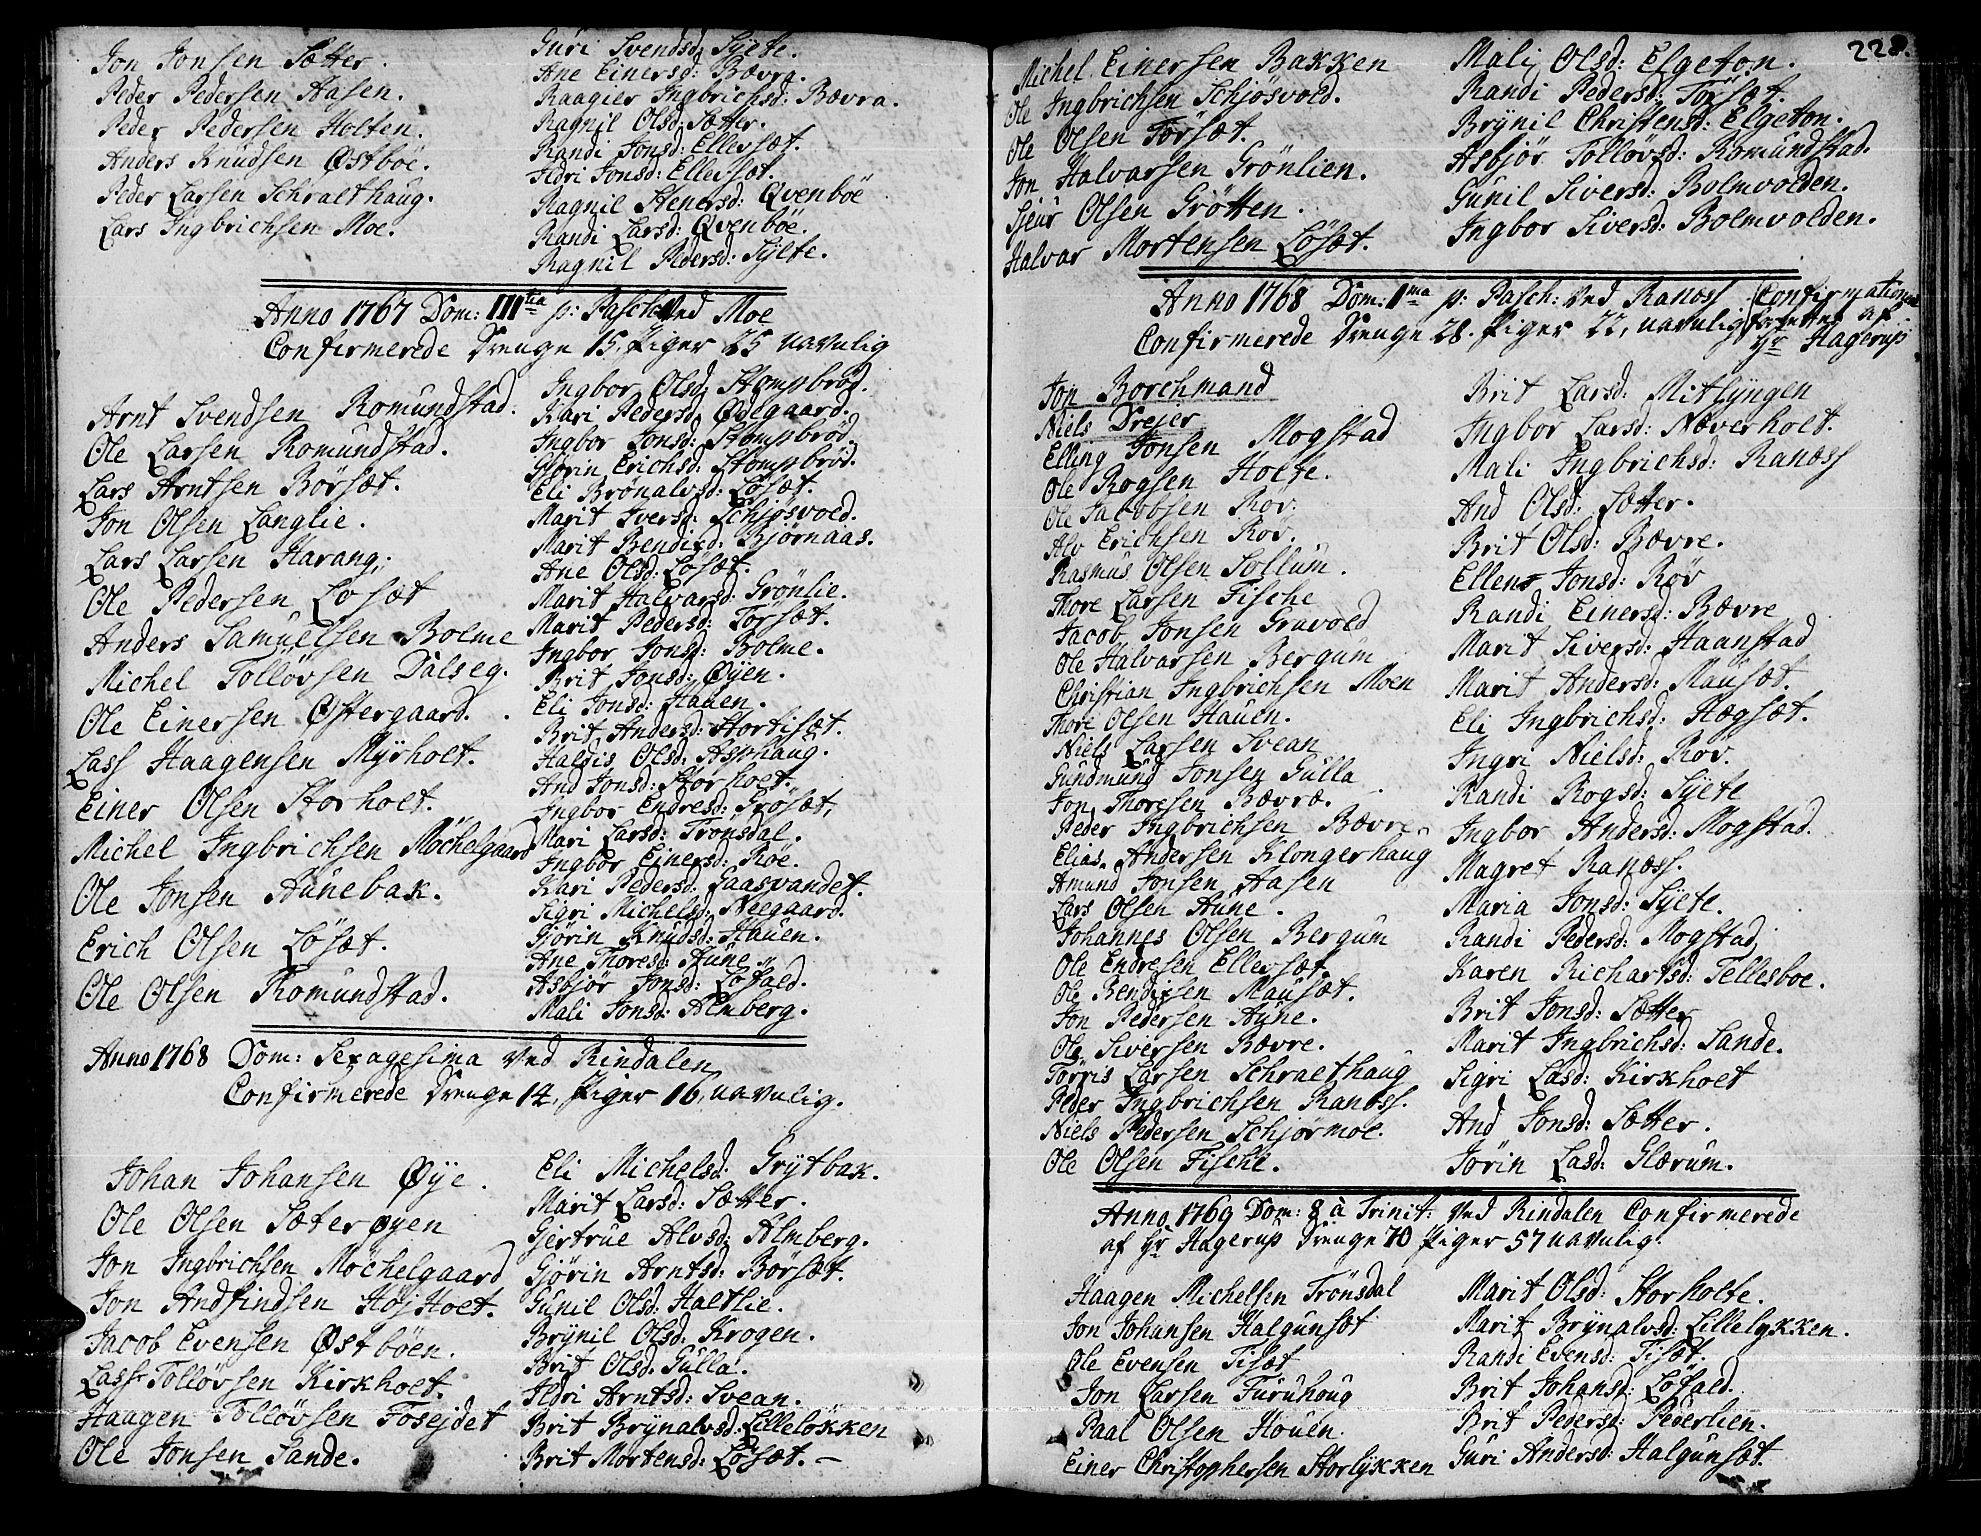 Jon Jonsen Sætter.
Peder Pedersen Aasen.
Peder Pedersen Holten.
Anders Knudsen Østböe.
Peder Larsen Schralthaug.
Lars Ingbrichsen Moe.
Guri Svendsd: Sÿlte.
Ane Einersd: Bævra.
Raagier Ingbrichsd: Bævra.
Ragnil Olsd: Sætter.
Randi Jonsd: Ellevsæt.
Ildri Jonsd: Ellevsæt.
Ragnil Stenersd: Qvenböe
Randi Larsd: Qvenböe.
Ragnil Pedersd: Sÿlte.
Anno 1767 Dom: IIItia p: Pasch: Ved Moe
Confirmerede Drenge 15, Piger 25 navnlig
Arnt Svendsen Romundstad.
Ole Larsen Romundstad.
Lars Arntsen Börsæt.
Jon Olsen Langlie.
Lars Larsen Harang.
Ole Pedersen Lösæt
Anders Samuelsen Bolme
Michel Tollövsen Dalseg.
Ole Einersen Østergaard.
Lass Haagensen Myrholt.
Einer Olsen Storholt.
Michel Ingbrichsen Möchelgaard
Ole Jonsen Aunebak.
Erich Olsen Lösæt.
Ole Olsen Romundstad.
Ingbor Olsd: Stompbröd.
Kari Pedersd: Ødegaard.
Ingbor Jonsd: Stompbröd.
Gjörin Erichsd: Stompbröd.
Eli Brönalvsd: Lösæt.
Marit Iversd: Schjösvold.
Marit Bendixd: Björnaas.
Ane Olsd: Lösæt.
Marit Halvarsd: Grönlie.
Marit Pedersd: Törsæt.
Ingbor Jonsd: Bolme.
Brit Jonsd: Øyen.
Eli Jonsd: Hauen.
Brit Andersd: Stortisæt.
Haldis Olsd: Asphaug.
And Jonsd: Storholt.
Ingbor Endresd: Grosæt.
Mari Larsd: Trönsdal.
Ingbor Einersd: Röe.
Kari Pedersd: Gaasvandet.
Sigri Michelsd: Neegaard.
Gjörin Knudsd: Hauen.
Ane Thoresd: Aune
Asbjör Jonsd: Löfald.
Mali Jonsd: Almberg.
Anno 1768 Dom: Sexagesima Ved Rindalen
Confirmerede Drenge 14, Piger 16, navnlig.
Johan Johansen Øye.
Ole Olsen Sæterøyen
Jon Ingbrichsen Möchelgaard
Jon Andfindsen Höjholt.
Jacob Evensen Østböen.
Lass Tollövsen Kirkholt.
Haagen Tollövsen Fosejdet
Ole Jonsen Sande.
Eli Michelsd: Grytbak.
Marit Larsd: Sætter.
Gjertrue Alvsd: Almberg.
Gjörin Arntsd: Börsæt.
Gunil Olsd: Haltlie.
Brÿnil Olsd: Krogen.
Brit Olsd: Gulla.
Ildri Arntsd: Svean.
Brit Brÿnalvsd: Lillelökken
Brit Mortensd: Lösæt.
228.
Michel Einersen Bakken
Ole Ingbrichsen Schjösvold.
Ole Olsen Törsæt.
Jon Halvarsen Grönlien.
Sjeur Olsen Grötten.
Halvar Mortensen Lösæt.
Mali Olsd: Elgeton.
Randi Pedersd: Törsæt.
Brÿnil Christensd: Elgeton.
Asbjör Tollövsd: Romundstad.
Gunil Siversd: Bolmvolden.
Ingbor Siversd: Bolmvolden.
Anno 1768 Dom: 1ma p: Pasch: Ved Ranæss
Confirmerede Drenge 28. Piger 22, navnlig
Confirmationen
forrettet af
Hr Hagerup
Jon Borchmand
Niels Drejer
Elling Jonsen Mogstad
Ole Rogsen Holte.
Ole Jacobsen Röv.
Alv Erichsen Röv.
Rasmus Olsen Sollum.
Thore Larsen Fische
Jacob Jonsen Gravold
Ole Halvarsen Bergum
Christian Ingbrichsen Moen
Thore Olsen Hauen.
Niels Larsen Svean
Gundmund Jonsen Gulla
Jon Thoresen Bævre.
Peder Ingbrichsen Bævre
Elias Andersen Klongerhaug
Amund Jonsen Aasen
Lars Olsen Aune.
Johannes Olsen Bergum
Ole Endresen Ellevsæt.
Ole Bendixsen Mausæt.
Jon Pedersen Aune.
Ole Siversen Bævre.
Torris Larsen Schralthaug
Peder Ingbrichsen Ranæss.
Niels Pedersen Schjörmoe.
Ole Olsen Fische.
Brit Larsd: Mitlÿngen
Ingbor Larsd: Næverholt.
Mali Ingbrichsd: Ranæss
And Olsd: Sætter.
Brit Olsd: Bævre.
Ellen Jonsd: Röv
Randi Einersd: Bævre
Marit Siversd: Haanstad
Marit Andersd: Mausæt.
Eli Ingbrichsd: Hægsæt.
Ingri Nielsd: Röv.
Randi Rogsd: Sÿlte
Ingbor Andersd: Mogstad.
Magret Ranæss.
Maria Jonsd: Sÿlte.
Randi Pedersd: Mogstad
Karen Richartsd: Tellesboe.
Brit Jonsd: Sætter
Marit Ingbrichsd: Sande.
Sigri Lasd: Kirkholt
And Jonsd: Sætter.
Jörin Lasd: Glærum.
Anno 1769 Dom: 8 à Trinit: Ved Rindalen Confirmerede
af Hr Hagerup Drenge 70 Piger 57 navnlig.
Haagen Michelsen Trönsdal
Jon Johansen Halgunsæt
Ole Evensen Tisæt
Jon Larsen Furuhoug
Paal Olsen Houen
Einer Christophersen Storlykken
Marit Olsd: Storholte.
Marit Brÿnalvsd: Lillelykken.
Randi Evensd: Tisæt.
Brit Johansd: Löfald.
Brit Pedersd: Pederlien.
Guri Andersd: Halgunsæt.